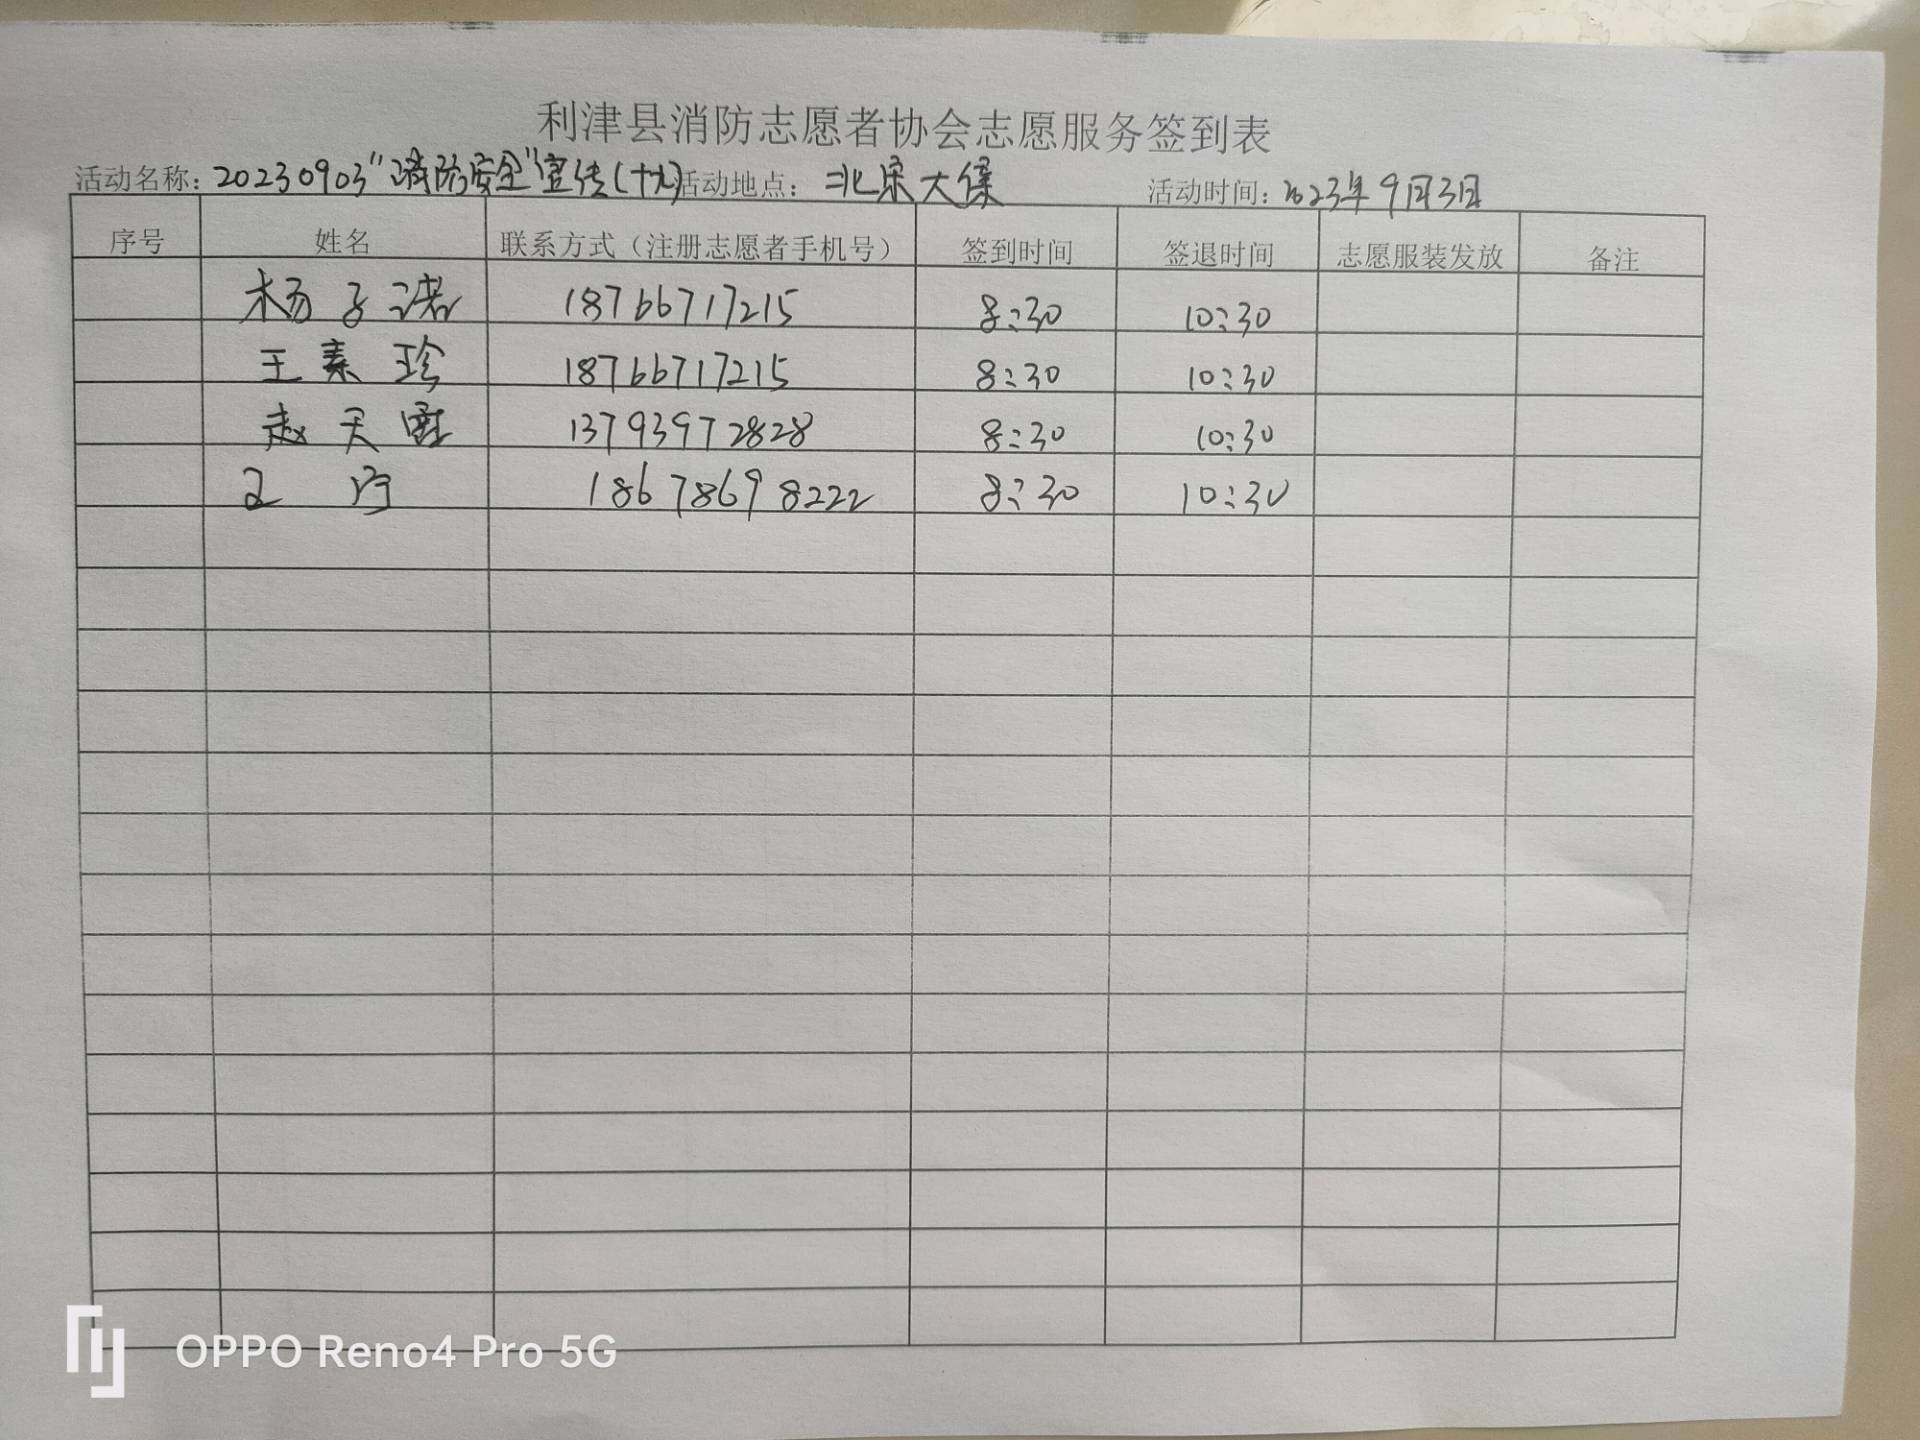 利津县消防志愿者协会志愿服务签到表
活动名称：20230903"消防安全"宣传(十九) 活动地点：北宋大集 活动时间：2023年9月3日
序号 姓名 联系方式（注册志愿者手机号） 签到时间 签退时间 志愿服装发放 备注
杨子诺 18766717215 8:30 10:30
王素珍 18766717215 8:30 10:30
赵天 13793972828 8:30 10:30
王宁 18678698222 8:30 10:30
OPPO Reno4 Pro 5G